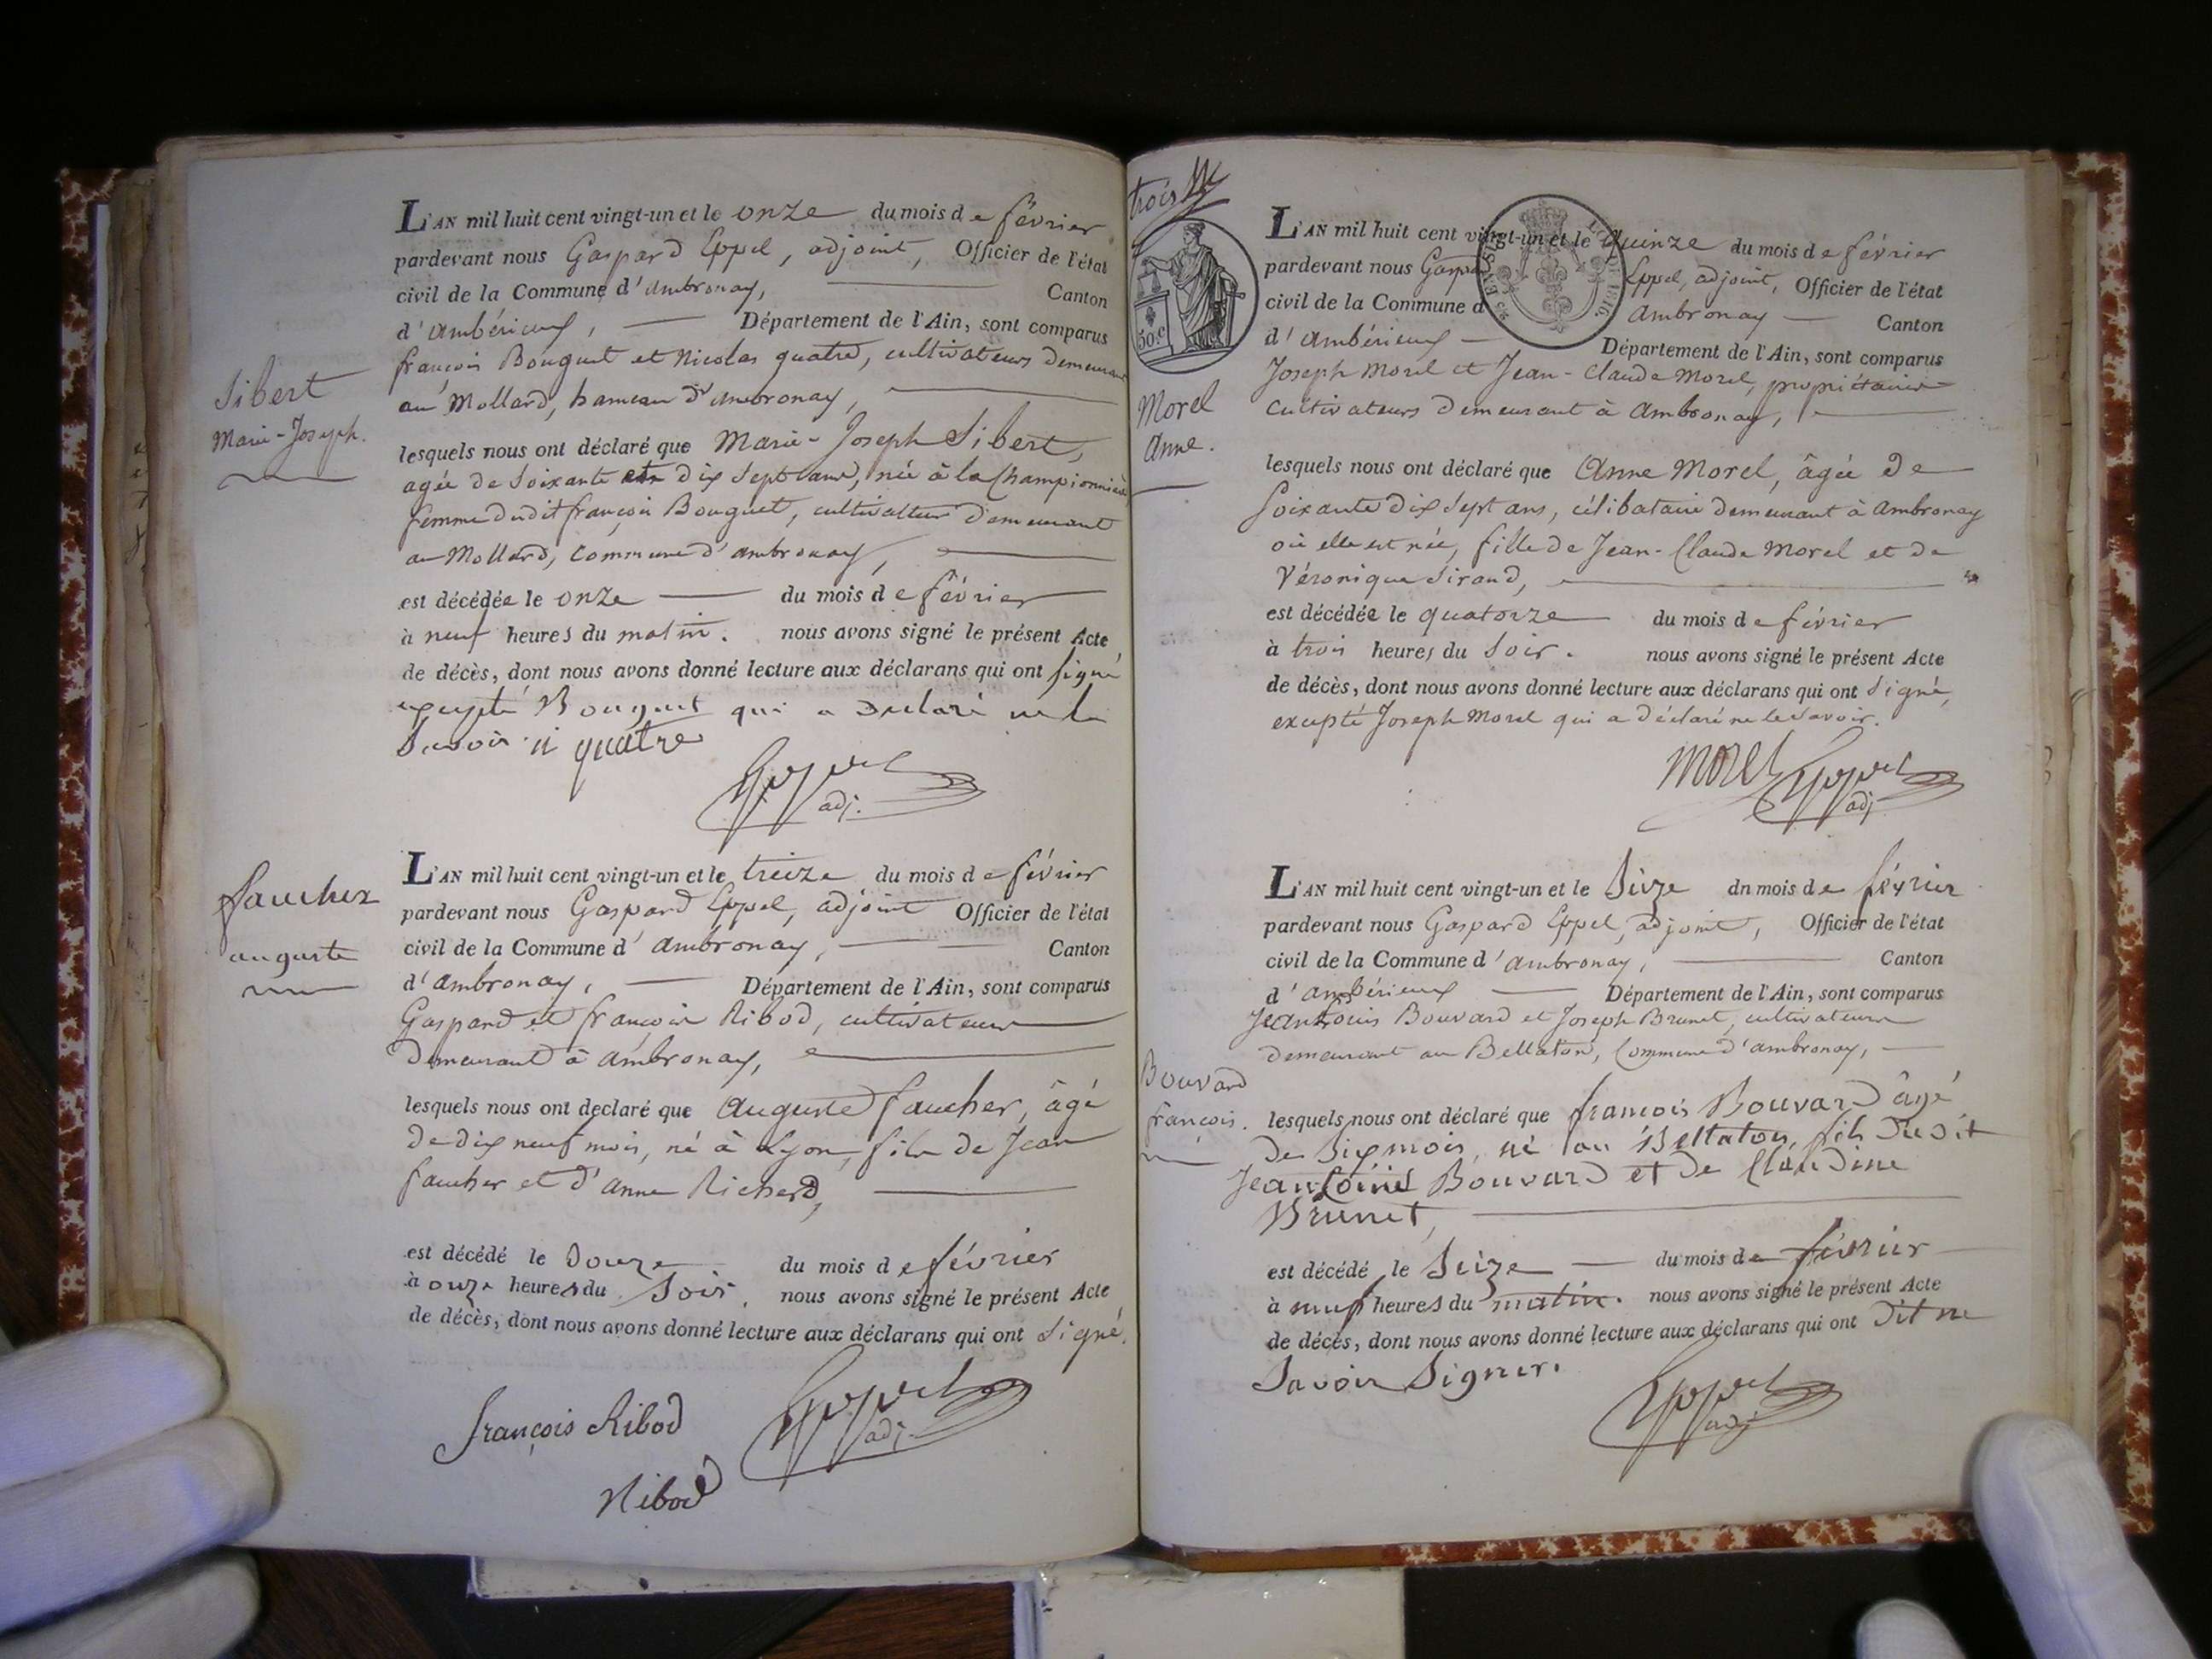 L'AN mil huit cent vingt-un et le onze du mois de février
pardevant nous Gaspard Eppel, adjoint, Officier de l'état
civil de la Commune d'ambronay, Canton
d'ambérieux, Département de l'Ain, sont comparus
françois Bouguet et Nicolas quatre, cultivateurs demeurant
au Mollard, hameau d'ambronay,
Sibert
Marie-Joseph.
lesquels nous ont déclaré que Marie-Joseph Sibert,
agée de soixante et dix sept ans, née à la Championnière
femme dudit françois Bouguet, cultivatteur demeurant
au Mollard, commune d'ambronay,
est décédée le onze du mois de février
à neuf heures du matin. nous avons signé le présent Acte
de décès, dont nous avons donné lecture aux déclarans qui ont signé
excepté Bouguet qui a déclaré ne le
savoir n quatre
Eppel
adj.
faucher
auguste
L'AN mil huit cent vingt-un et le treize du mois de février
pardevant nous Gaspard Eppel, adjoint Officier de l'état
civil de la Commune d'ambronay, Canton
d'ambronay, Département de l'Ain, sont comparus
Gaspard et françois Ribod, cultivateurs
demeurant à ambronay,
lesquels nous ont declaré que Auguste faucher, âgé
de dix neuf mois, né à Lyon, fils de Jean
faucher et d'anne Richerd,
est décédé le douze du mois de février
à onze heures du soir. nous avons signé le présent Acte
de décès, dont nous avons donné lecture aux déclarans qui ont signé.
françois Ribod
Eppel
adj.
Ribod
trois
50.c
LOI DE 1816.
L'AN mil huit cent vingt-un et le quinze du mois de février
pardevant nous Gaspard Eppel, adjoint, Officier de l'état
civil de la Commune d ambronay Canton
d'ambérieux Département de l'Ain, sont comparus
Joseph Morel et Jean-Claude Morel, propriétaires
cultivateurs demeurant à ambronay,
Morel
Anne.
lesquels nous ont déclaré que Anne Morel, âgée de
soixante dix sept ans, célibataire demeurant à ambronay
où elle est née, fille de Jean-Claude Morel et de
Véronique Sirand,
est décédée le quatorze du mois de février
à trois heures du soir. nous avons signé le présent Acte
de décès, dont nous avons donné lecture aux déclarans qui ont signé,
excepté Joseph Morel qui a déclaré ne le savoir.
Morel Eppel
adj.
L'AN mil huit cent vingt-un et le Sieze dn mois de février
pardevant nous Gaspard Eppel, adjoint, Officier de l'état
civil de la Commune d'ambronay, Canton
d'ambérieux Département de l'Ain, sont comparus
Jean Louis Bouvard et Joseph Brunet, cultivateurs
demeurant au Bellaton, Commune d'ambronay,
Bouvard
françois.
lesquels nous ont déclaré que françois Bouvard âgé
de six mois, né au Bellaton, fils dudit
Jean Louis Bouvard et de Claudine
Brunet,
est décédé le Seize du mois de février
à neuf heures du matin. nous avons signé le présent Acte
de décès, dont nous avons donné lecture aux déclarans qui ont dit ne
savoir signer.
Eppel
adj